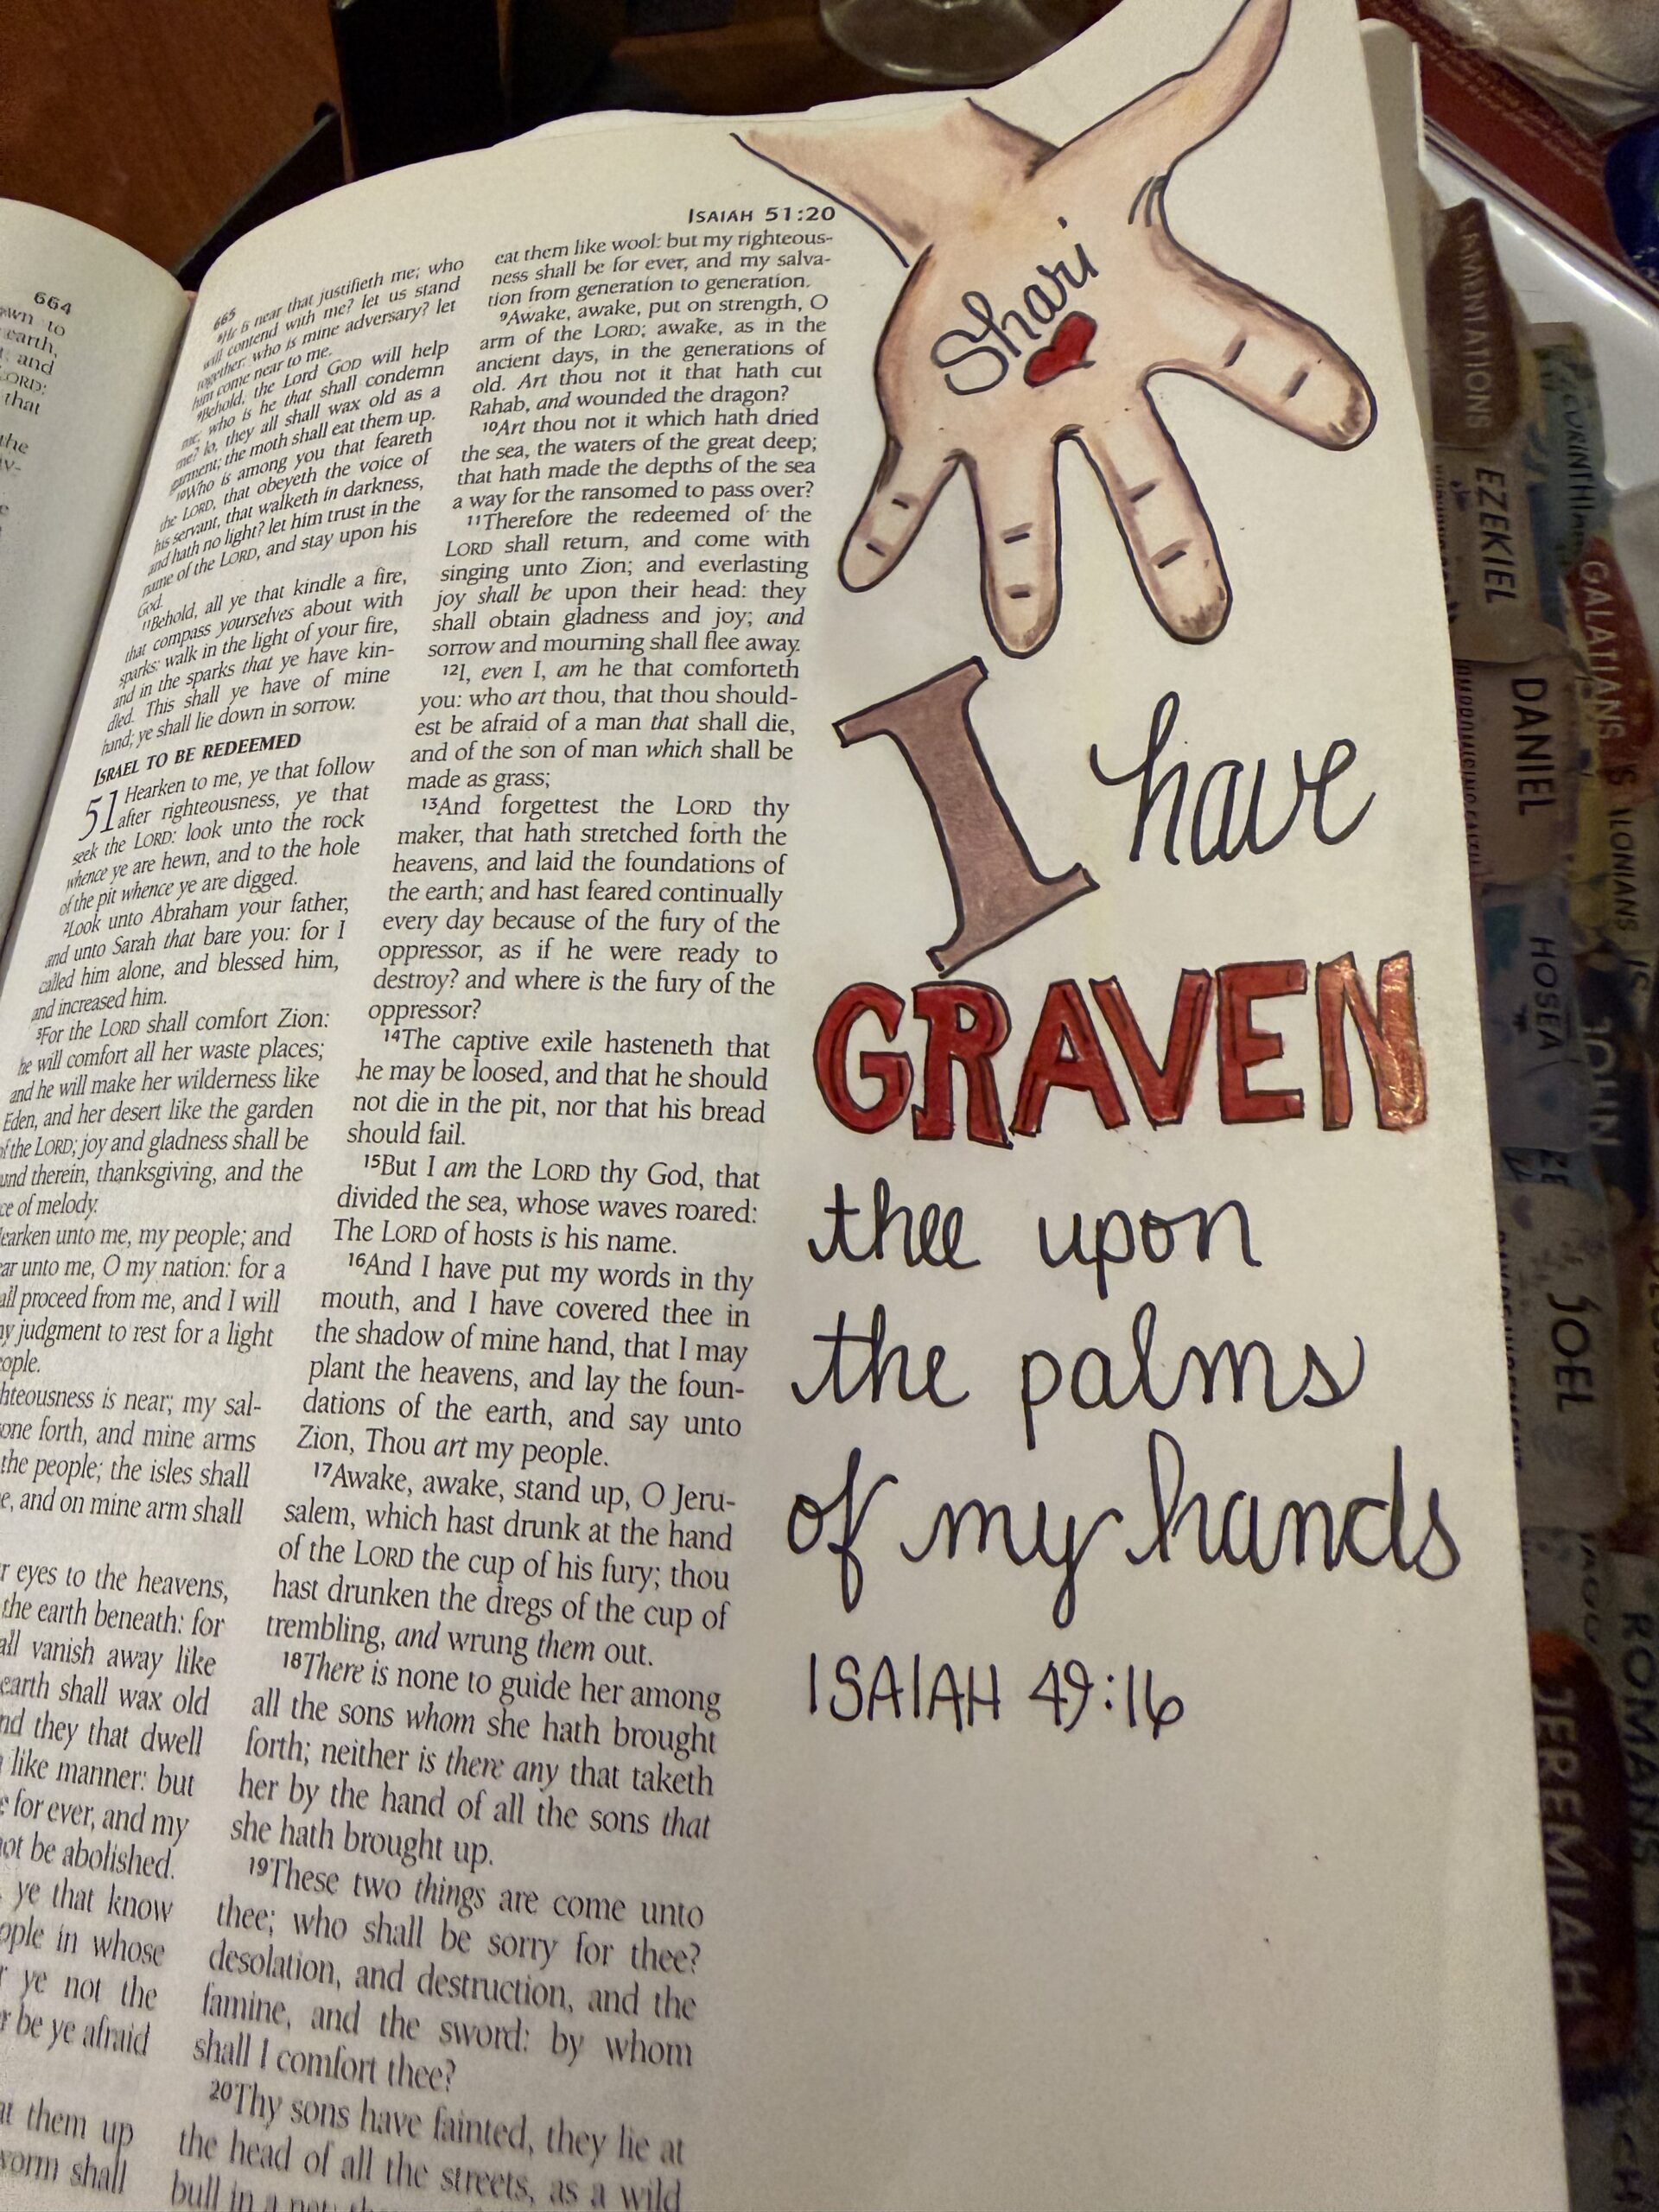 664
own to
earth,
and
LORD:
that
the
665
ISAIAH 51:20
⁸He is near that justifieth me; who
will contend with me? let us stand
together: who is mine adversary? let
him come near to me.
⁹Behold, the Lord GOD will help
me; who is he that shall condemn
me? lo, they all shall wax old as a
garment; the moth shall eat them up.
¹⁰Who is among you that feareth
the LORD, that obeyeth the voice of
his servant, that walketh in darkness,
and hath no light? let him trust in the
name of the LORD, and stay upon his
God.
¹¹Behold, all ye that kindle a fire,
that compass yourselves about with
sparks: walk in the light of your fire,
and in the sparks that ye have kin-
dled. This shall ye have of mine
hand; ye shall lie down in sorrow.
ISRAEL TO BE REDEEMED
51 Hearken to me, ye that follow
after righteousness, ye that
seek the LORD: look unto the rock
whence ye are hewn, and to the hole
of the pit whence ye are digged.
²Look unto Abraham your father,
and unto Sarah that bare you: for I
called him alone, and blessed him,
and increased him.
³For the LORD shall comfort Zion:
he will comfort all her waste places;
and he will make her wilderness like
Eden, and her desert like the garden
of the LORD; joy and gladness shall be
und therein, thanksgiving, and the
ce of melody.
earken unto me, my people; and
ar unto me, O my nation: for a
all proceed from me, and I will
y judgment to rest for a light
eople.
hteousness is near; my sal-
one forth, and mine arms
the people; the isles shall
e, and on mine arm shall
r eyes to the heavens,
the earth beneath: for
all vanish away like
earth shall wax old
nd they that dwell
like manner: but
e for ever, and my
not be abolished.
ye that know
ople in whose
ye not the
r be ye afraid
at them up
worm shall
eat them like wool: but my righteous-
ness shall be for ever, and my salva-
tion from generation to generation.
⁹Awake, awake, put on strength, O
arm of the LORD; awake, as in the
ancient days, in the generations of
old. Art thou not it that hath cut
Rahab, and wounded the dragon?
¹⁰Art thou not it which hath dried
the sea, the waters of the great deep;
that hath made the depths of the sea
a way for the ransomed to pass over?
¹¹Therefore the redeemed of the
LORD shall return, and come with
singing unto Zion; and everlasting
joy shall be upon their head: they
shall obtain gladness and joy; and
sorrow and mourning shall flee away.
¹²I, even I, am he that comforteth
you: who art thou, that thou should-
est be afraid of a man that shall die,
and of the son of man which shall be
made as grass;
¹³And forgettest the LORD thy
maker, that hath stretched forth the
heavens, and laid the foundations of
the earth; and hast feared continually
every day because of the fury of the
oppressor, as if he were ready to
destroy? and where is the fury of the
oppressor?
¹⁴The captive exile hasteneth that
he may be loosed, and that he should
not die in the pit, nor that his bread
should fail.
¹⁵But I am the LORD thy God, that
divided the sea, whose waves roared:
The LORD of hosts is his name.
¹⁶And I have put my words in thy
mouth, and I have covered thee in
the shadow of mine hand, that I may
plant the heavens, and lay the foun-
dations of the earth, and say unto
Zion, Thou art my people.
¹⁷Awake, awake, stand up, O Jeru-
salem, which hast drunk at the hand
of the LORD the cup of his fury; thou
hast drunken the dregs of the cup of
trembling, and wrung them out.
¹⁸There is none to guide her among
all the sons whom she hath brought
forth; neither is there any that taketh
her by the hand of all the sons that
she hath brought up.
¹⁹These two things are come unto
thee; who shall be sorry for thee?
desolation, and destruction, and the
famine, and the sword: by whom
shall I comfort thee?
²⁰Thy sons have fainted, they lie at
the head of all the streets, as a wild
bull in a net:
Shari
I have
GRAVEN
thee upon
the palms
of my hands
ISAIAH 49:16
LAMENTATIONS
EZEKIEL
DANIEL
HOSEA
JOEL
JEREMIAH
GALATIANS
JOHN
ROMANS